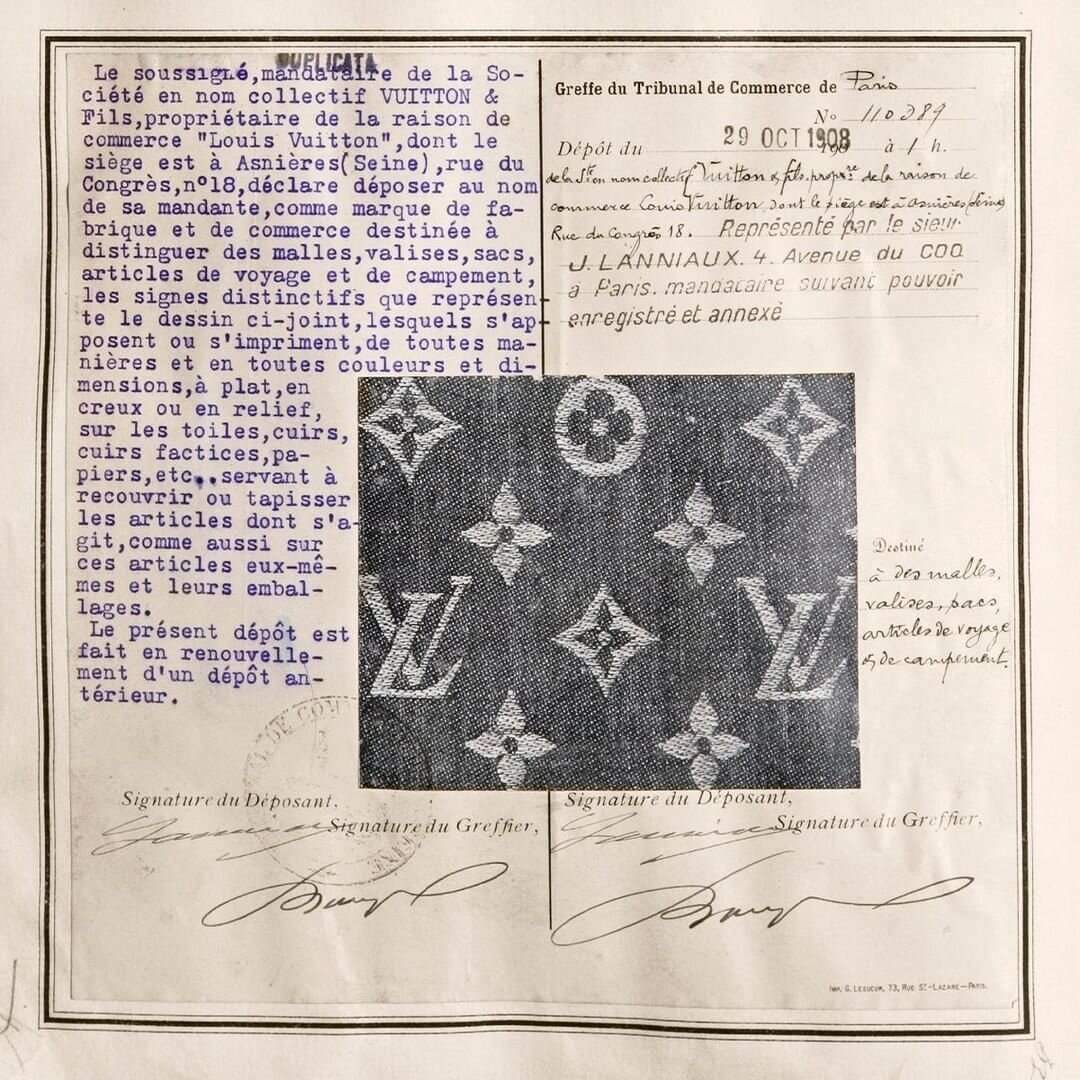 DUPLICATA
Le soussigné,mandataire de la So-
ciété en nom collectif VUITTON &
Fils,propriétaire de la raison de
commerce "Louis Vuitton",dont le
siège est à Asnières(Seine),rue du
Congrès,n°18,déclare déposer au nom
de sa mandante,comme marque de fa-
brique et de commerce destinée à
distinguer des malles,valises,sacs,
articles de voyage et de campement,
les signes distinctifs que représen-
te le dessin ci-joint,lesquels s'ap-
posent ou s'impriment,de toutes ma-
nières et en toutes couleurs et di-
mensions,à plat,en
creux ou en relief,
sur les toiles,cuirs,
cuirs factices,pa-
piers,etc..servant à
recouvrir ou tapisser
les articles dont s'a-
git,comme aussi sur
ces articles eux-mê-
mes et leurs embal-
lages.
Le présent dépôt est
fait en renouvelle-
ment d'un dépôt an-
térieur.
DE COM
Signature du Déposant,
Signature du Greffier,
Greffe du Tribunal de Commerce de Paris
No 110389
Dépôt du 29 OCT 1908 à 1 h.
de la Sté en nom collectif Vuitton & fils, propre de la raison de
commerce Louis Vuitton, dont le siège est à Asnières (Seine)
Rue du Congrès 18. Représenté par le sieur
J. LANNIAUX. 4. Avenue du COQ
à Paris. mandataire suivant pouvoir
enregistré et annexé
LV
LV
Destiné
à des malles,
valises, sacs,
articles de voyage
et de campement.
Signature du Déposant,
Signature du Greffier,
IMP. G. LESUEUR, 73, RUE ST-LAZARE—PARIS.